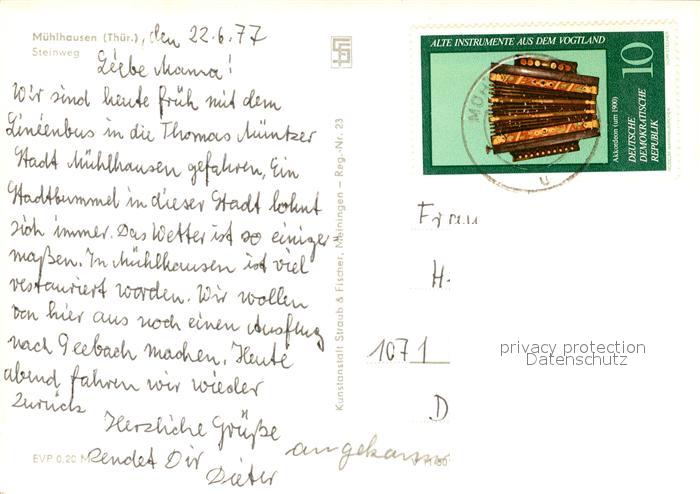 Mühlhausen (Thür.)
Steinweg
, den 22.6.77
Liebe Mama!
Wir sind heute früh mit dem
Linienbus in die Thomas Müntzer
Stadt Mühlhausen gefahren. Ein
Stadtbummel in dieser Stadt lohnt
sich immer. Das Wetter ist so einiger=
maßen. In Mühlhausen ist viel
restauriert worden. Wir wollen
von hier aus noch einen Ausflug
nach Seebach machen. Heute
abend fahren wir wieder
zurück
Herzliche Grüße
sendet Dir
Dieter
EVP 0,20 M
Kunstanstalt Straub & Fischer, Meiningen – Reg.-Nr. 23
ALTE INSTRUMENTE AUS DEM VOGTLAND
10
Akkordeon (um 1900)
DEUTSCHE
DEMOKRATISCHE
REPUBLIK
MÜH
u
Frau
H
1071
D
angekomm
privacy protection
Datenschutz